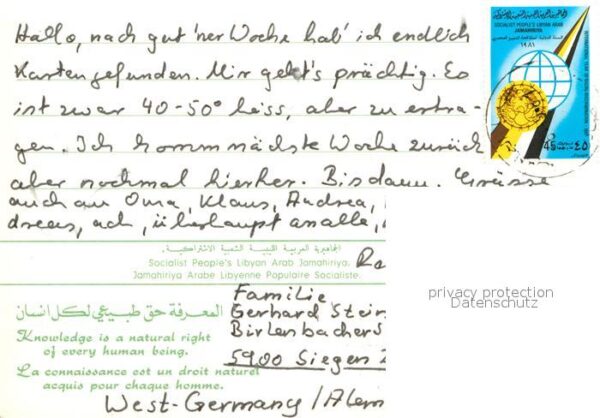 Hallo, nach gut 'ner Woche hab' ich endlich
Karten gefunden. Mir geht's prächtig. Es
ist zwar 40-50° heiss, aber zu ertra-
gen. Ich komm nächste Woche zurück
aber nochmal hierher. Bis dann. Grüsse
auch an Oma, Klaus, Andrea,
dreas, ach, überhaupt an alle,
SOCIALIST PEOPLE'S LIBYAN ARAB
JAMAHIRIYA
١٩٨١
45
٤٥
الجماهيرية العربية الليبية الشعبية الاشتراكية.
Socialist People's Libyan Arab Jamahiriya.
Jamahiriya Arabe Libyenne Populaire Socialiste.
Ra
المعرفة حق طبيعي لكل انسان
Knowledge is a natural right
of every human being.
La connaissance est un droit naturel
acquis pour chaque homme.
Familie
Gerhard Stein
Birlenbachers
5900 Siegen 2
West-Germany / Alem
privacy protection
Datenschutz